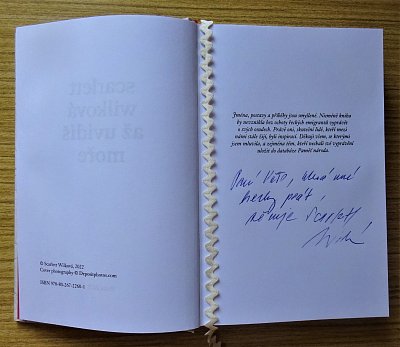 scarlett
wilková
až uvidíš
moře
© Scarlett Wilková, 2012
Cover photography © Depositphotos.com
ISBN 978-80-267-2260-1
Jména, postavy a příběhy jsou smyšlené. Nicméně kniha
by nevznikla bez ochoty českých emigrantů vyprávět
o svých osudech. Právě oni, skuteční lidé, kteří mezi
námi stále žijí, byli inspirací. Děkuji všem, se kterými
jsem mluvila, a zejména těm, kteří nechali své vyprávění
uložit do databáze Paměť národa.
hezky
věnuje Scarlett